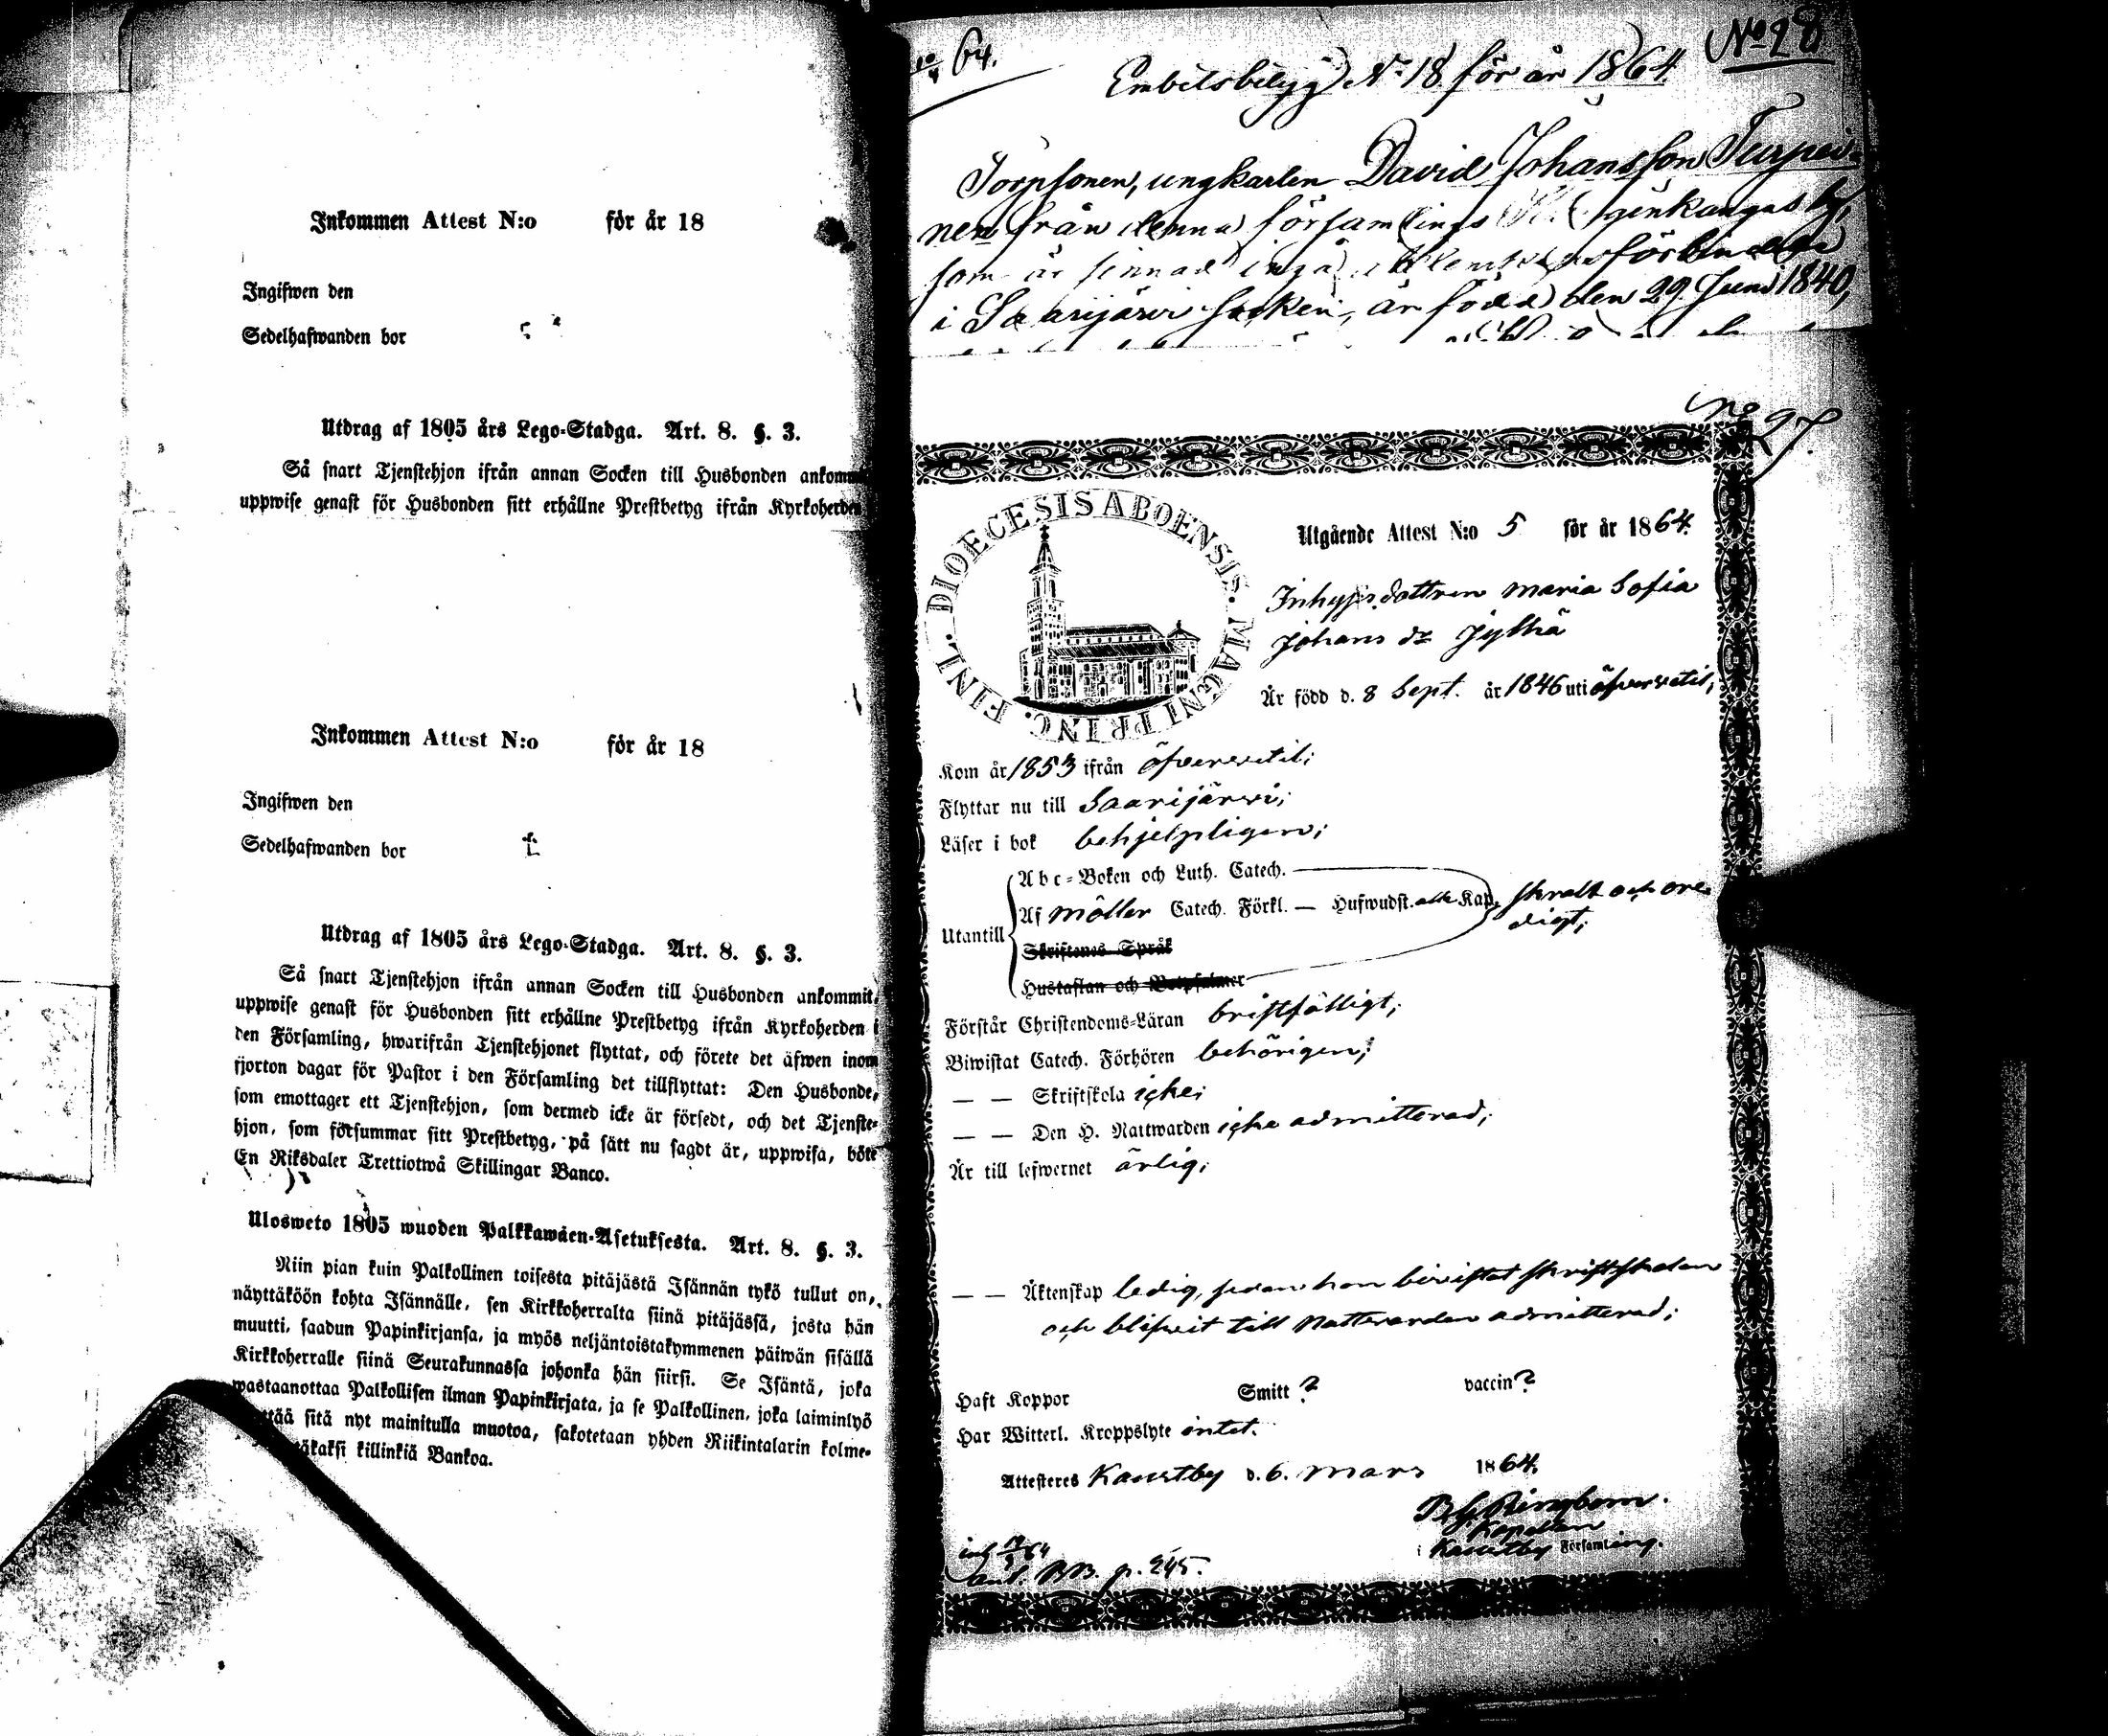 Inkommen Attest N:o för år 18
Ingifwen den
Sedelhafwanden bor
Utdrag af 1805 års Lego-Stadga. Art. 8. §. 3.
Så snart Tjenstehjon ifrån annan Socken till Husbonden ankommit
uppwise genast för Husbonden sitt erhållne Prestbetyg ifrån Kyrkoherden
Inkommen Attest N:o för år 18
Ingifwen den
Sedelhafwanden bor
Utdrag af 1805 års Lego-Stadga. Art. 8. §. 3.
Så snart Tjenstehjon ifrån annan Socken till Husbonden ankommit,
uppwise genast för Husbonden sitt erhållne Prestbetyg ifrån Kyrkoherden i
den Församling, hwarifrån Tjenstehjonet flyttat, och förete det äfwen inom
fjorton dagar för Pastor i den Församling det tillflyttat: Den Husbonde,
som emottager ett Tjenstehjon, som dermed icke är försedt, och det Tjenste-
hjon, som försummar sitt Prestbetyg, på sätt nu sagdt är, uppwisa, böte
En Riksdaler Trettiotwå Skillingar Banco.
Ulosweto 1805 wuoden Palkkawäen-Asetuksesta. Art. 8. §. 3.
Niin pian kuin Palkollinen toisesta pitäjästä Isännän tykö tullut on,
näyttäköön kohta Isännälle, sen Kirkkoherralta siinä pitäjässä, josta hän
muutti, saadun Papinkirjansa, ja myös neljäntoistakymmenen päiwän sisällä
Kirkkoherralle siinä Seurakunnassa johonka hän siirsi. Se Isäntä, joka
wastaanottaa Palkollisen ilman Papinkirjata, ja se Palkollinen, joka laiminlyö
sitä nyt mainitulla muotoa, sakotetaan yhden Riikintalarin kolme-
killinkiä Bankoa.
10/4 64.
No 28
Embetsbetyg No 18 för år 1864.
Torpsonen, ungkarlen David Johansson Turpei-
nen från denna församlings
som är sinnad ingå
i Saarijärvi socken, är född den 29 Juni 1840,
No 27
DIOECESIS ABOENSIS. MAGNI PRINC. FINL.
Utgående Attest N:o 5 för år 1864.
Inhyses dottren Maria Sofia
Johans dr Jylhä
Är född d. 8 Sept. år 1846 uti öfvervetil;
Kom år 1853 ifrån öfvervetil;
Flyttar nu till Saarijärvi;
Läser i bok behjelpligen;
Utantill
Abc-Boken och Luth. Catech.
Af Möller Catech. Förkl. — Hufwudst. alla Kap. skralt och ore-
digt;
Skriftenes Språk
Hustaflan och Botpsalmer
Förstår Christendoms-Läran bristfälligt;
Biwistat Catech. Förhören behörigen;
— — Skriftskola icke;
— — Den H. Nattwarden icke admitterad;
Är till lefwernet ärlig;
— — Äktenskap ledig, sedan hon bivistat skriftskolan
och blifvit till Nattvarden admitterad;
Haft Koppor Smitt ? vaccin ?
Har Witterl. Kroppslyte intet.
Attesteres Kaustby d. 6. Mars 1864.
B G Ringbom.
Kapellan
i Kaustby Församling.
BB. p. 245.